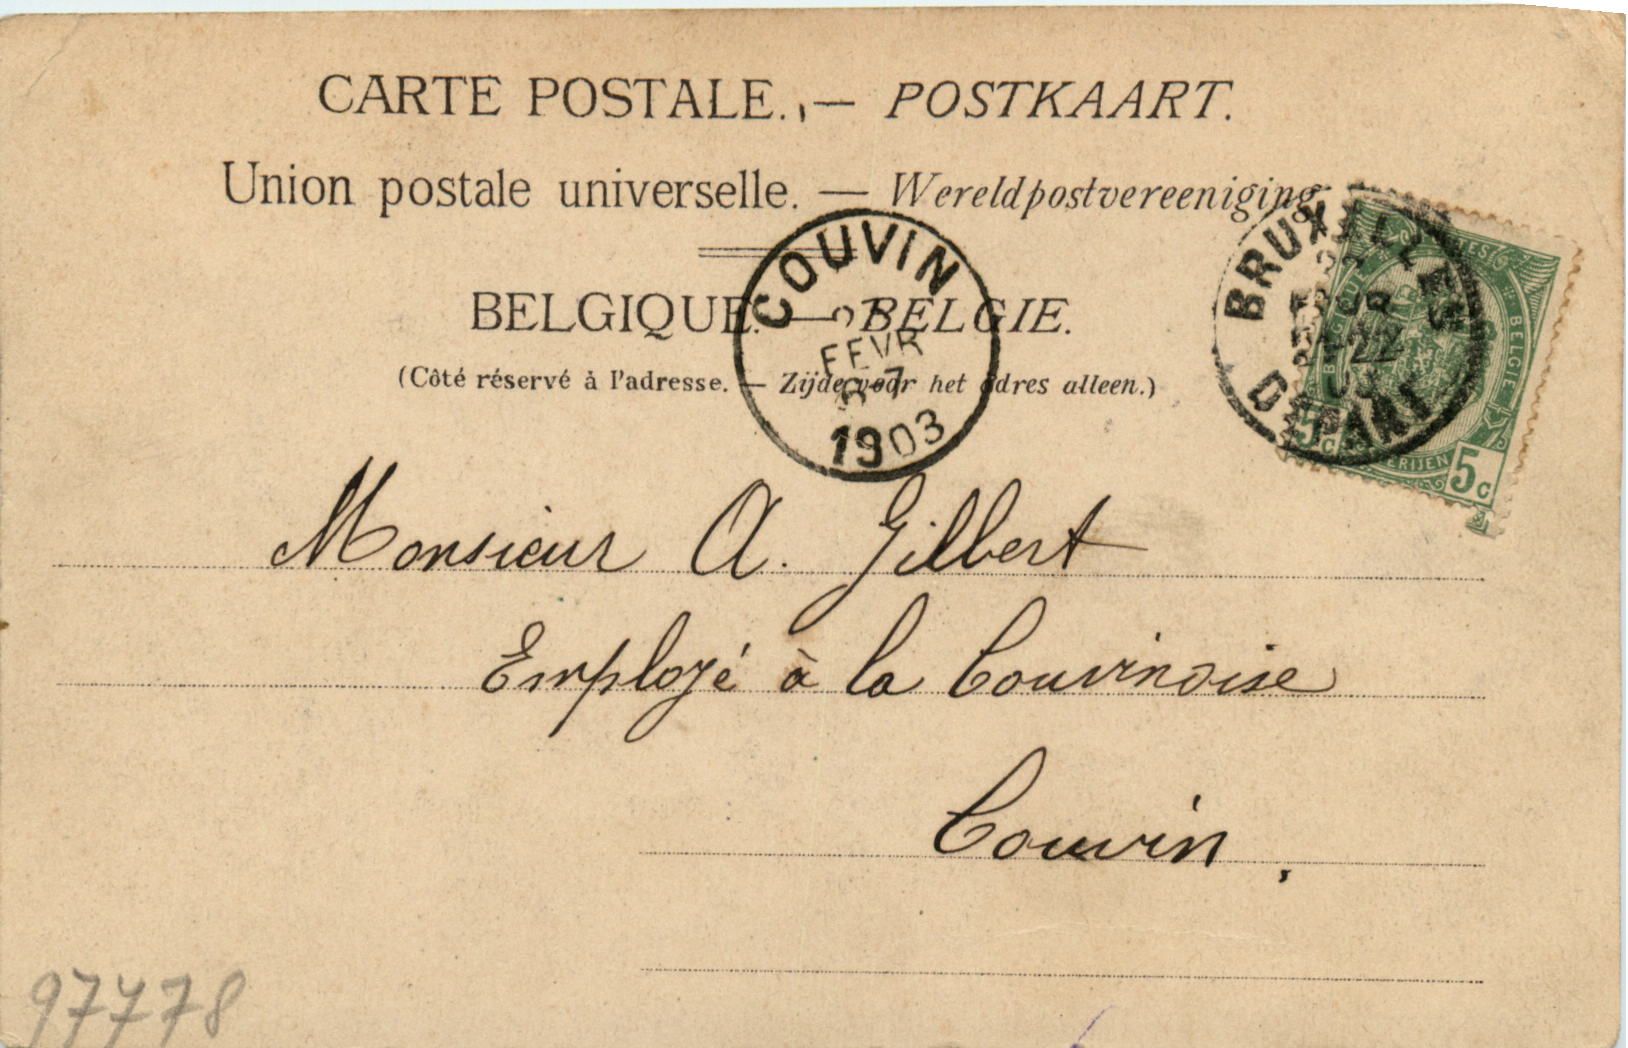 CARTE POSTALE. — POSTKAART.
Union postale universelle. — Wereldpostvereeniging.
BELGIQUE. — BELGIE.
(Côté réservé à l'adresse. — Zijde voor het adres alleen.)
COUVIN
FEVR
1903
BRUXELLES
DÉPART
5c
5c
Monsieur A. Gilbert
Employé à la Couvinoise
Couvin,
97778